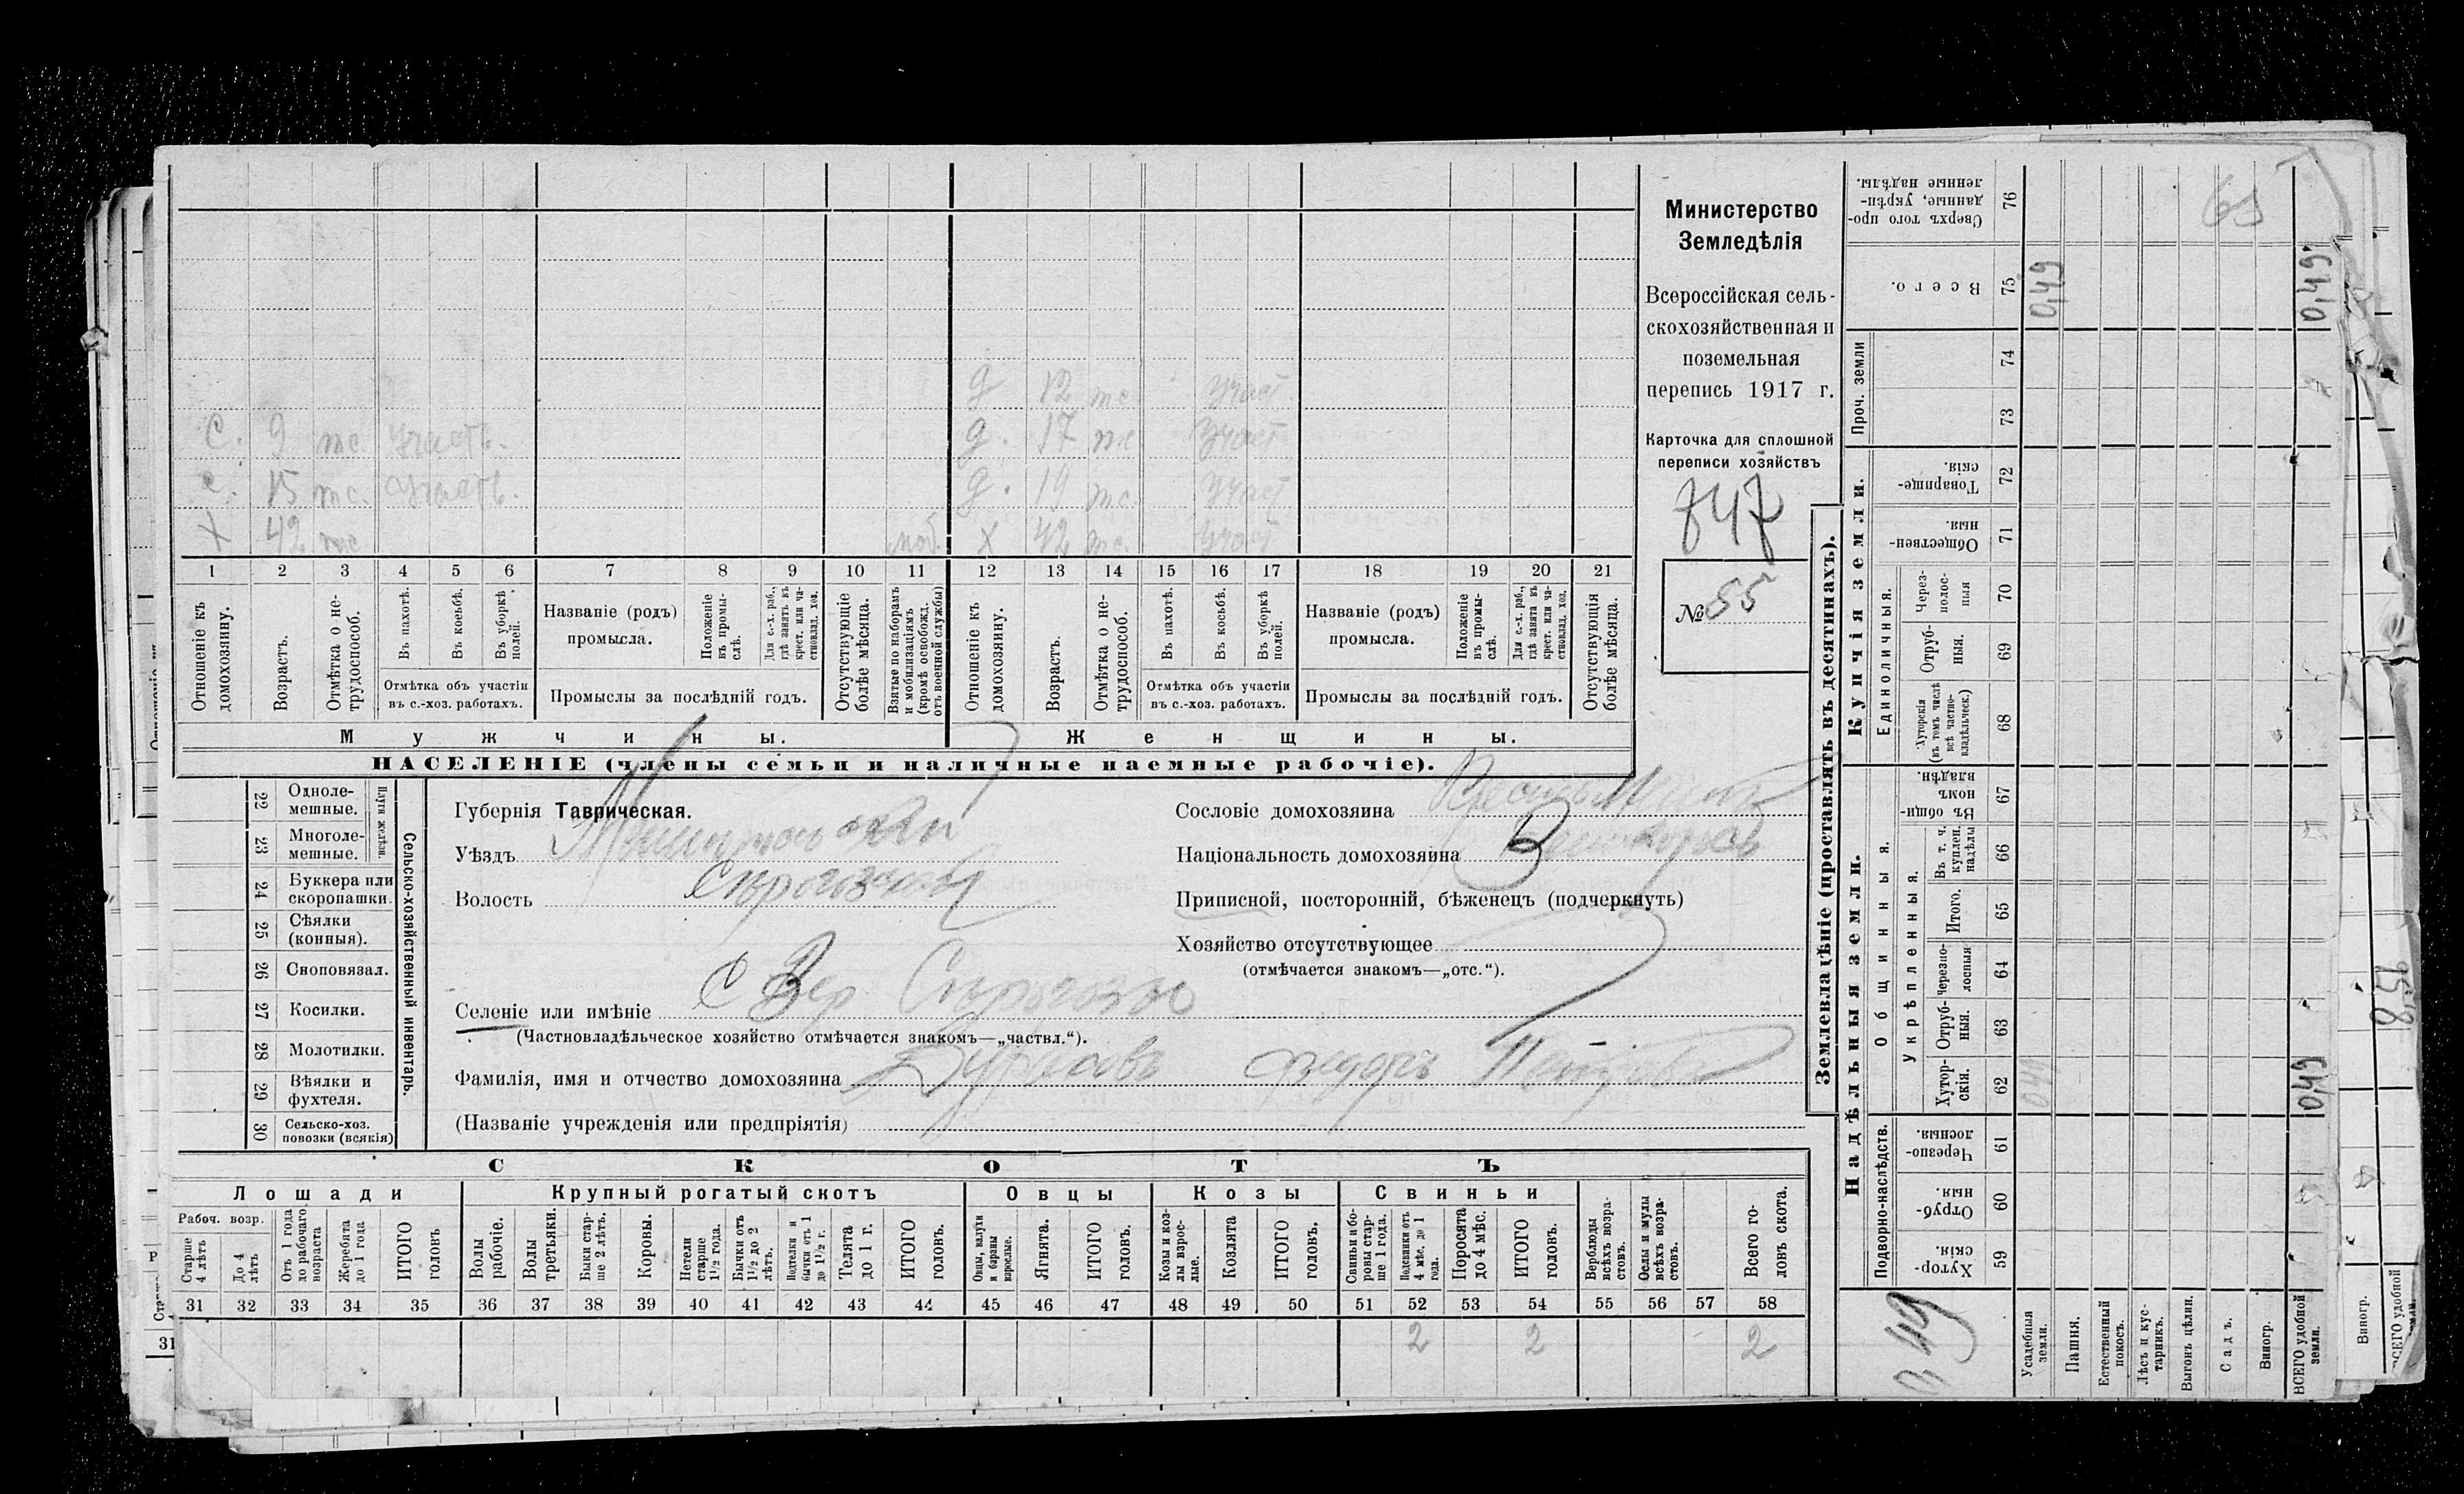 Министерство
Земледѣлія
Всероссійская сель-
скохозяйственная и
поземельная
перепись 1917 г.
Карточка для сплошной
переписи хозяйствъ
847
№ 55
д 12 тс. Участ.
С. 9 тс. Участв. д. 17 тс Участ
с. 15 тс. Участв. д. 19 тс. Участ
X 42 тс моб. X 42 тс. Участ
1 2 3 4 5 6 7 8 9 10 11 12 13 14 15 16 17 18 19 20 21
Отношеніе къ домохозяину.
Возрастъ.
Отмѣтка о не-трудоспособ.
Въ пахотѣ.
Въ косьбѣ.
Въ уборкѣ полей.
Отмѣтка объ участіи
въ с.-хоз. работахъ.
Названіе (родъ)
промысла.
Положеніе въ промы-слѣ.
Для с.-х. раб., гдѣ занятъ въ крест. или ча-стновлад. хоз.
Промыслы за послѣдній годъ.
Отсутствующіе болѣе мѣсяца.
Взятые по наборамъ и мобилизаціямъ (кромѣ освобожд. отъ военной службы)
Отношеніе къ домохозяину.
Возрастъ.
Отмѣтка о не-трудоспособ.
Въ пахотѣ.
Въ косьбѣ.
Въ уборкѣ полей.
Отмѣтка объ участіи
въ с.-хоз. работахъ.
Названіе (родъ)
промысла.
Положеніе въ промы-слѣ.
Для с.-х. раб., гдѣ занята въ крест. или ча-стновлад. хоз.
Промыслы за послѣдній годъ.
Отсутствующія болѣе мѣсяца.
Мужчины. Женщины.
НАСЕЛЕНІЕ (члены семьи и наличные наемные рабочіе).
22 Одноле-мешные.
23 Многоле-мешные.
Плуги желѣзн.
24 Буккера или скоропашки.
25 Сѣялки (конныя).
26 Сноповязал.
27 Косилки.
28 Молотилки.
29 Вѣялки и фухтеля.
30 Сельско-хоз. повозки (всякія)
Сельско-хозяйственный инвентарь.
Губернія Таврическая.
Уѣздъ
Волость
Селеніе или имѣніе С Вер.
(Частновладѣльческое хозяйство отмѣчается знакомъ—„частвл.“).
Фамилія, имя и отчество домохозяина
(Названіе учрежденія или предпріятія)
Сословіе домохозяина
Національность домохозяина
Приписной, посторонній, бѣженецъ (подчеркнуть)
Хозяйство отсутствующее
(отмѣчается знакомъ—„отс.“).
СКОТЪ
Лошади Крупный рогатый скотъ Овцы Козы Свиньи
Рабоч. возр.
Старше 4 лѣтъ
До 4 лѣтъ
Отъ 1 года до рабочаго возраста
Жеребята до 1 года
ИТОГО головъ
Волы рабочіе.
Волы третьяки.
Быки стар-ше 2 лѣтъ.
Коровы.
Нетели старше 1½ года.
Бычки отъ 1½ до 2 лѣтъ.
Подтелки и бычки отъ 1 до 1½ г.
Телята до 1 г.
ИТОГО головъ.
Овцы, валухи и бараны взрослые.
Ягнята.
ИТОГО головъ.
Козы и коз-лы взрос-лые.
Козлята
ИТОГО головъ.
Свиньи и бо-ровы стар-ше 1 года.
Подсвинки отъ 4 мѣс. до 1 года.
Поросята до 4 мѣс.
ИТОГО головъ.
Верблюды всѣхъ возра-стовъ.
Ослы и мулы всѣхъ возра-стовъ.
Всего го-ловъ скота.
31 32 33 34 35 36 37 38 39 40 41 42 43 44 45 46 47 48 49 50 51 52 53 54 55 56 57 58
2 2 2
Землевладѣніе (проставлять въ десятинахъ).
Надѣльныя земли.
Купчія земли.
Проч. земли
Подворно-наслѣдств.
Общинныя.
Укрѣпленныя.
Единоличныя.
Сверхъ того про-данные, укрѣп-ленные надѣлы. 76
Всего. 75 0,49 0,49
74
73
Товарище-скія. 72
Обществен-ныя. 71
Через-полос-ныя 70
Отруб-ныя. 69
Хуторскія (въ томъ числѣ всѣ частно-владѣльческ.) 68
Въ общи-номъ владѣн. 67
Въ т. ч. куплен. надѣлы 66
Итого. 65
Черезпо-лосныя 64
Отруб-ныя. 63
Хутор-скія. 62 0,49
Черезпо-лосныя. 61
Отруб-ныя. 60
Хутор-скія. 59
0,49
Усадебныя земли.
Пашня.
Естественный покосъ.
Лѣсъ и кус-тарникъ.
Выгонъ цѣлин.
Садъ.
Виногр.
ВСЕГО удобной земли.
Виногр.
31